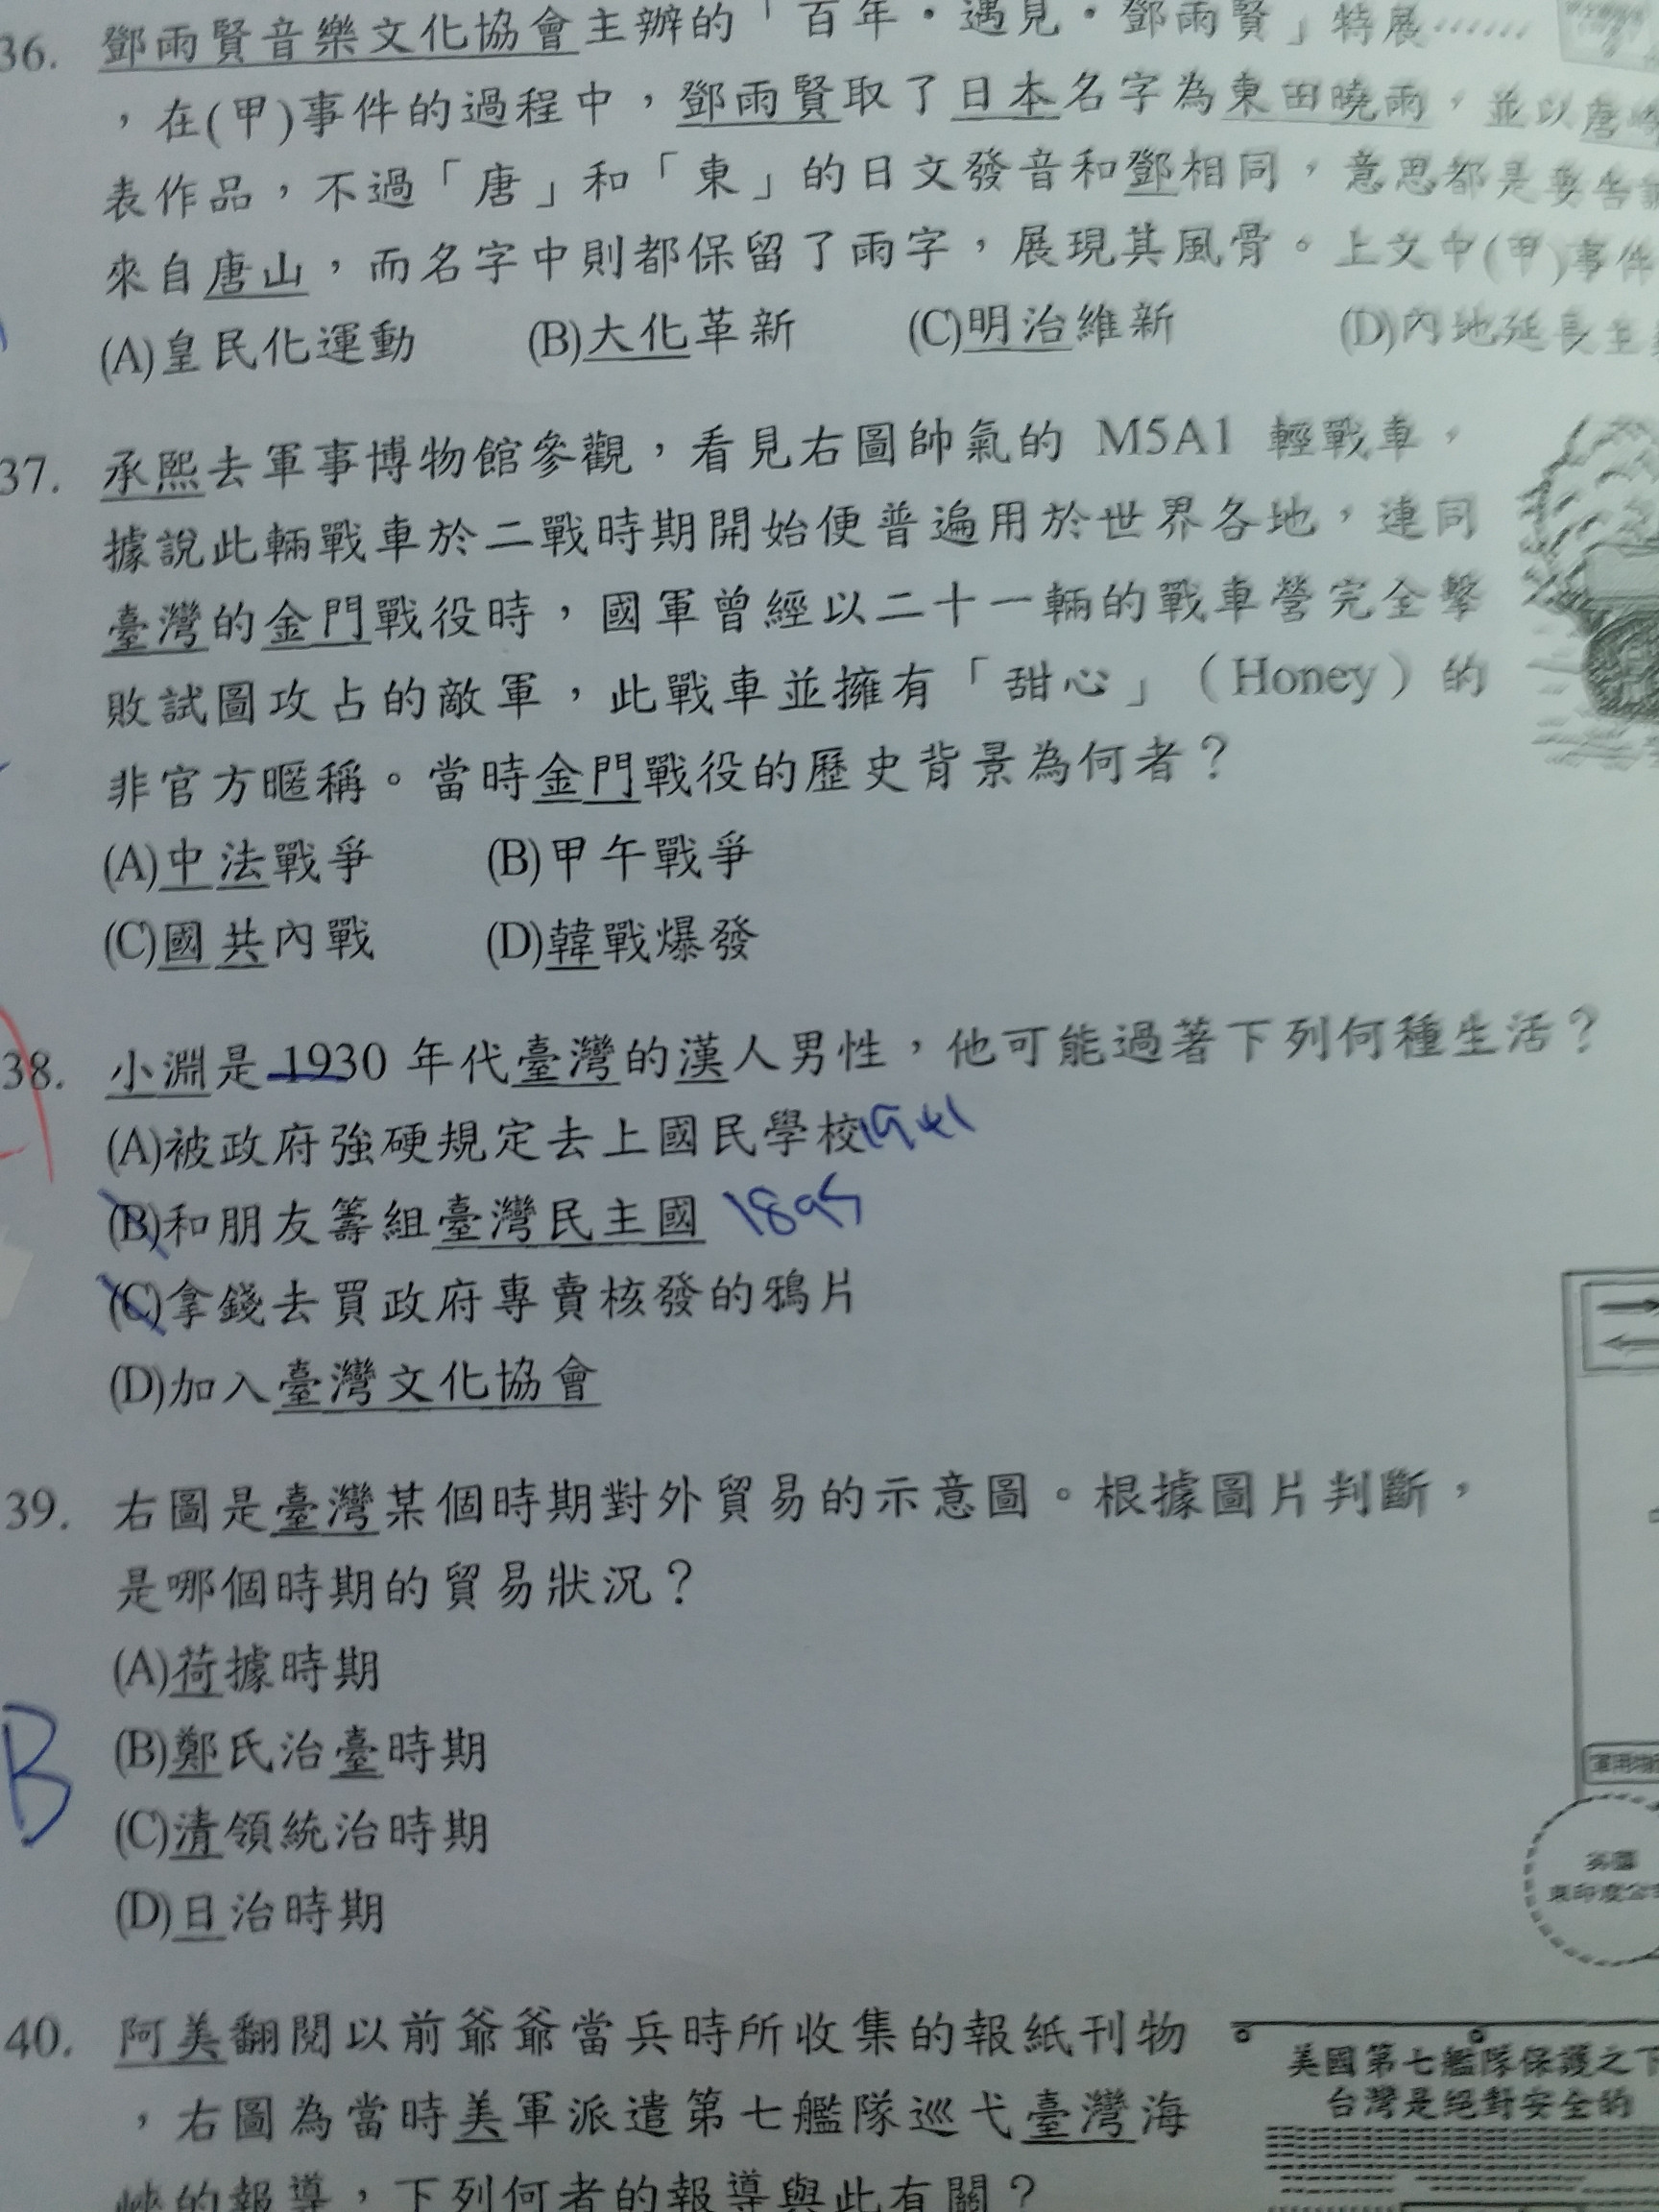 36. 鄧雨賢音樂文化協會主辦的「百年·遇見·鄧雨賢」特展……
，在(甲)事件的過程中，鄧雨賢取了日本名字為東田曉雨，並以唐崎
表作品，不過「唐」和「東」的日文發音和鄧相同，意思都是要告訴
來自唐山，而名字中則都保留了雨字，展現其風骨。上文中(甲)事件
(A)皇民化運動 (B)大化革新 (C)明治維新 (D)內地延長主
37. 承熙去軍事博物館參觀，看見右圖帥氣的 M5A1 輕戰車，
據說此輛戰車於二戰時期開始便普遍用於世界各地，連同
臺灣的金門戰役時，國軍曾經以二十一輛的戰車營完全擊
敗試圖攻占的敵軍，此戰車並擁有「甜心」（Honey）的
非官方暱稱。當時金門戰役的歷史背景為何者？
(A)中法戰爭 (B)甲午戰爭
(C)國共內戰 (D)韓戰爆發
38. 小淵是 1930 年代臺灣的漢人男性，他可能過著下列何種生活？
(A)被政府強硬規定去上國民學校 1941
(B)和朋友籌組臺灣民主國 1895
(C)拿錢去買政府專賣核發的鴉片
(D)加入臺灣文化協會
39. 右圖是臺灣某個時期對外貿易的示意圖。根據圖片判斷，
是哪個時期的貿易狀況？
(A)荷據時期
B (B)鄭氏治臺時期
(C)清領統治時期
(D)日治時期
軍用物
英國
東印度公司
40. 阿美翻閱以前爺爺當兵時所收集的報紙刊物
，右圖為當時美軍派遣第七艦隊巡弋臺灣海
峽的報導，下列何者的報導與此有關？
美國第七艦隊保護之下
台灣是絕對安全的